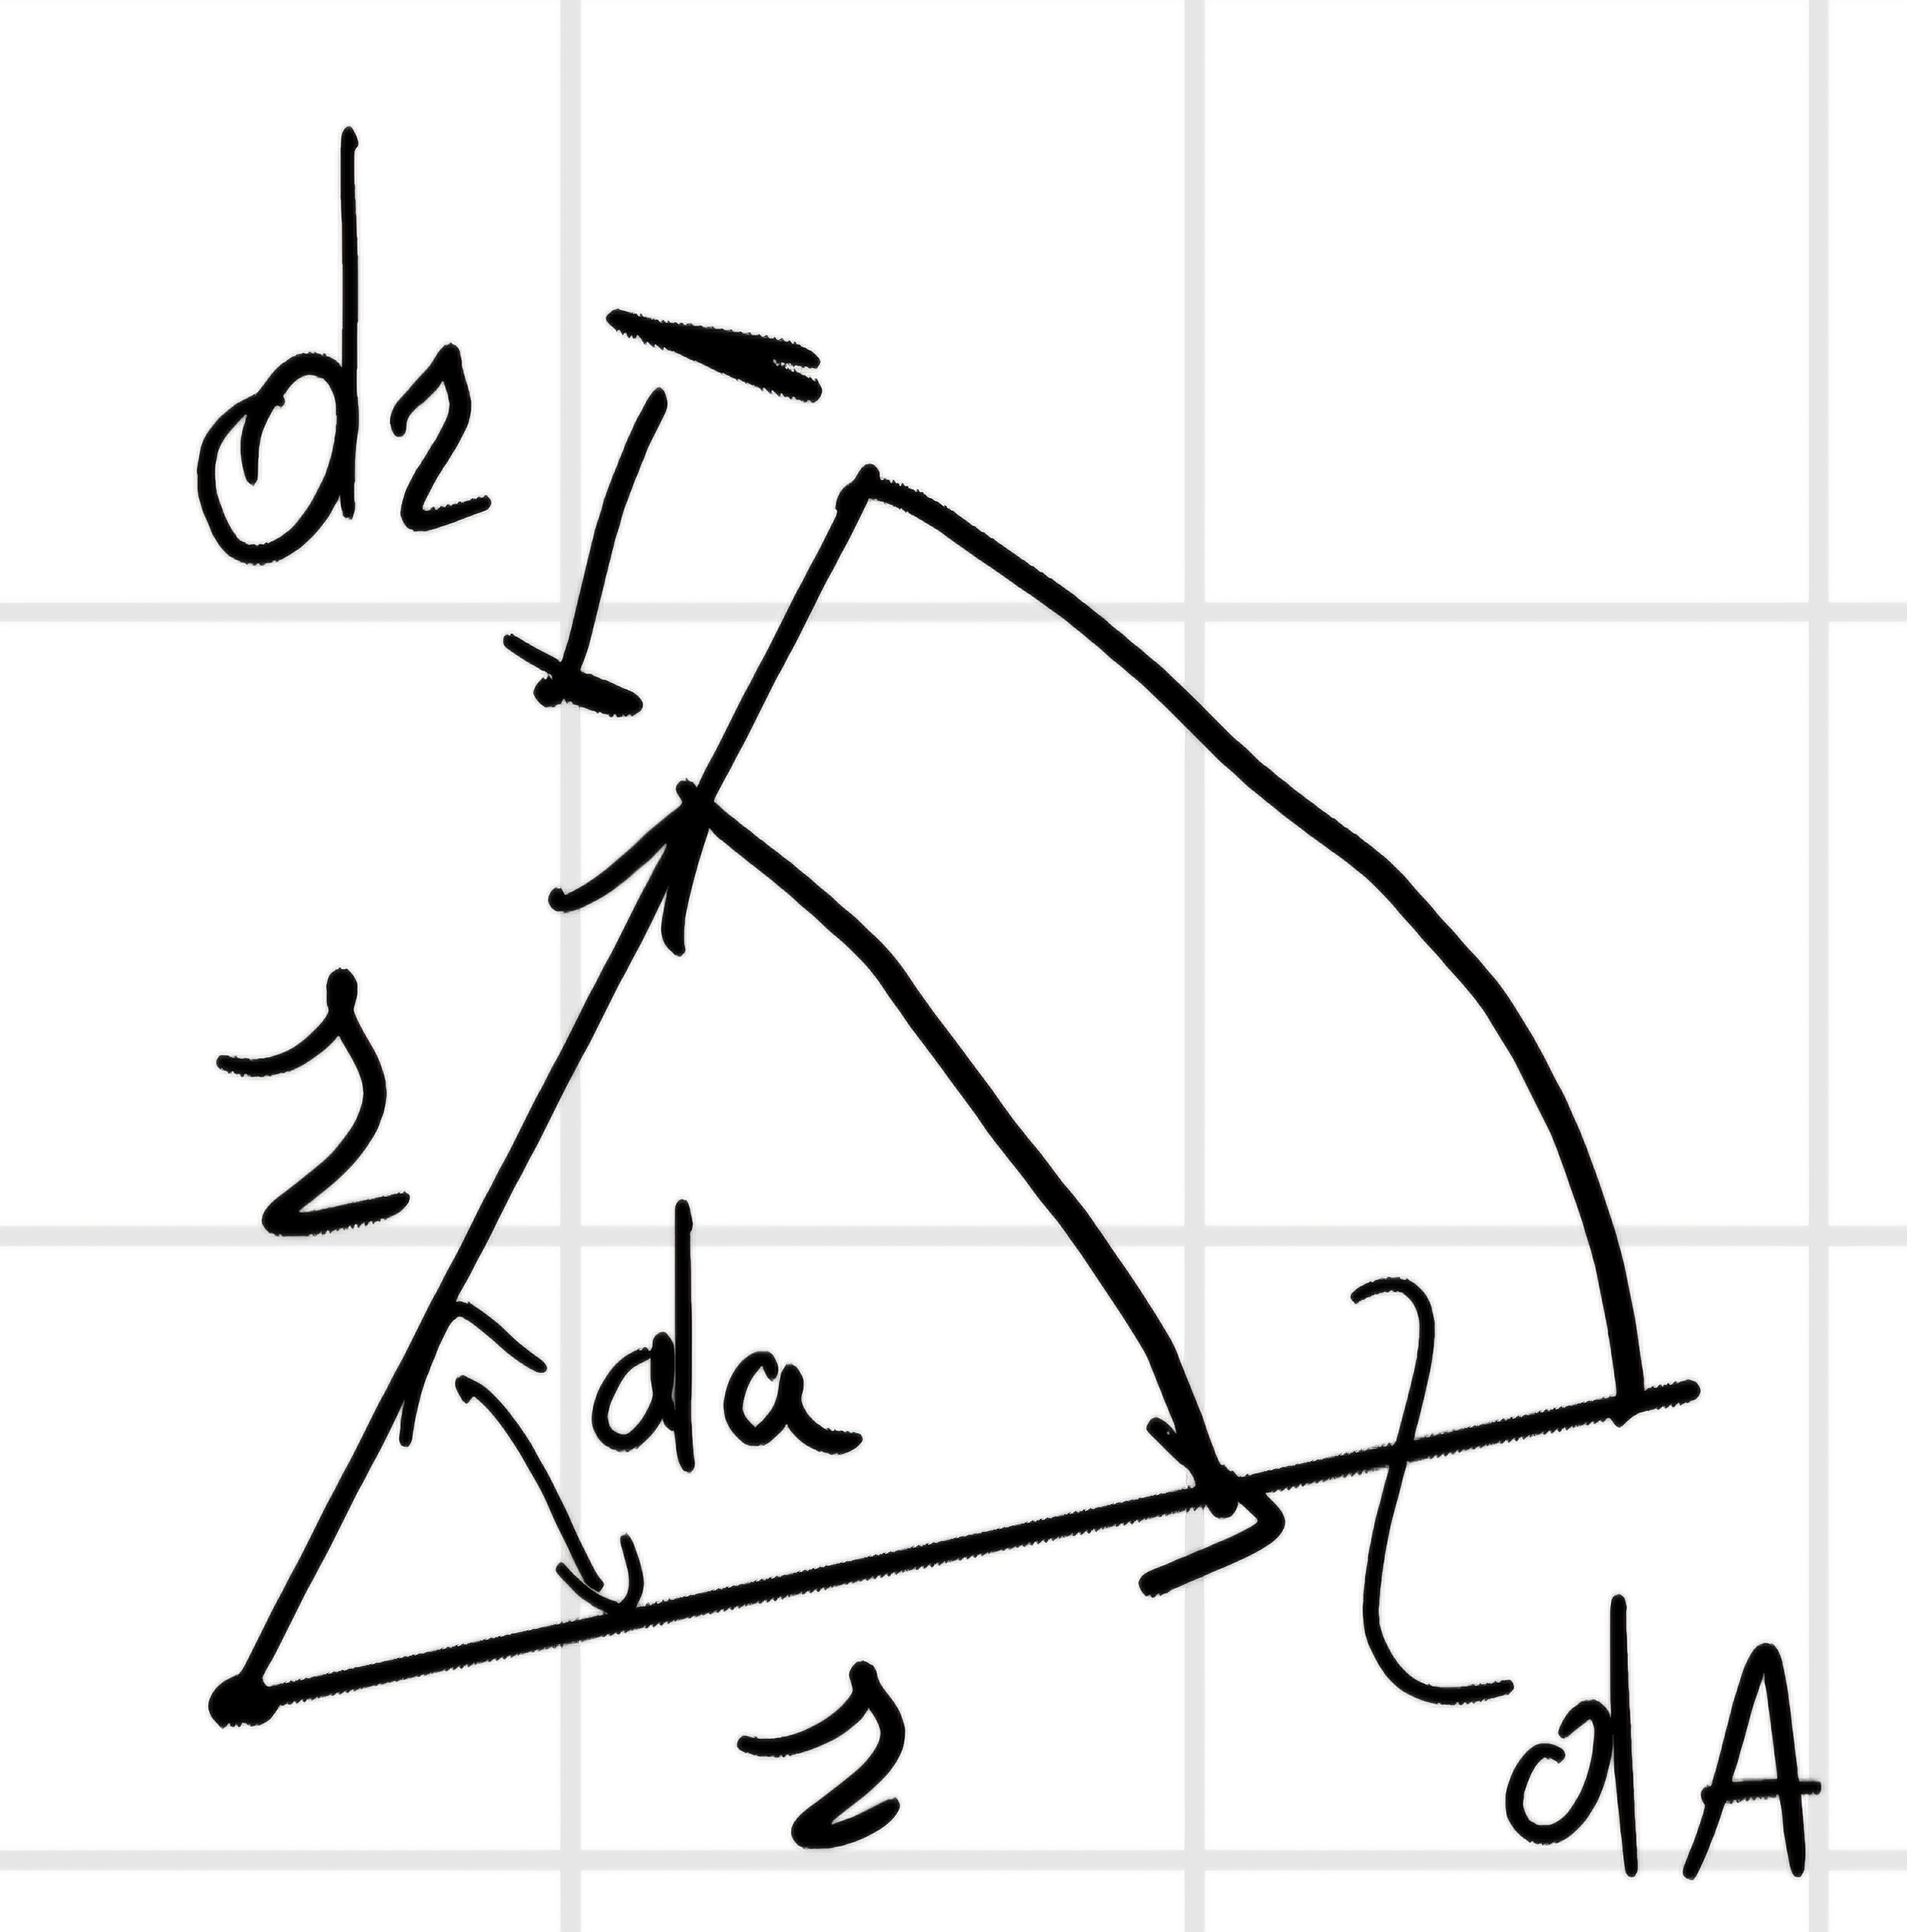 dr
r
da
r
dA